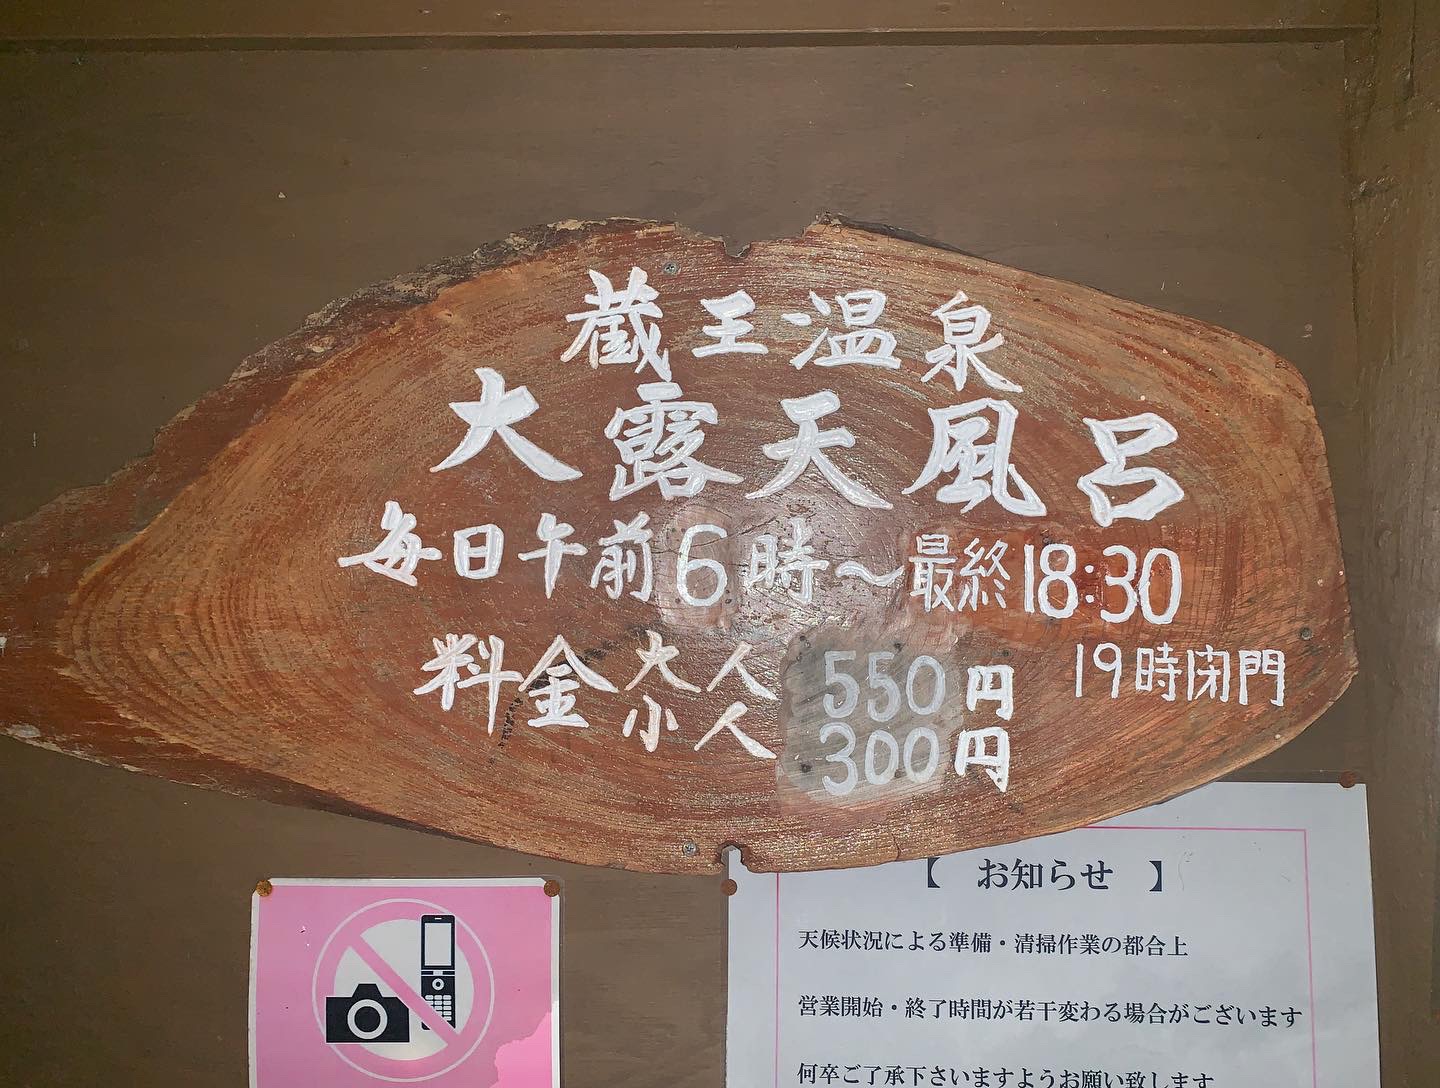 蔵王温泉
大露天風呂
毎日午前6時～最終18:30
19時閉門
料金大人 550円
小人 300円
【 お知らせ 】
天候状況による準備・清掃作業の都合上
営業開始・終了時間が若干変わる場合がございます
何卒ご了承下さいますようお願い致します